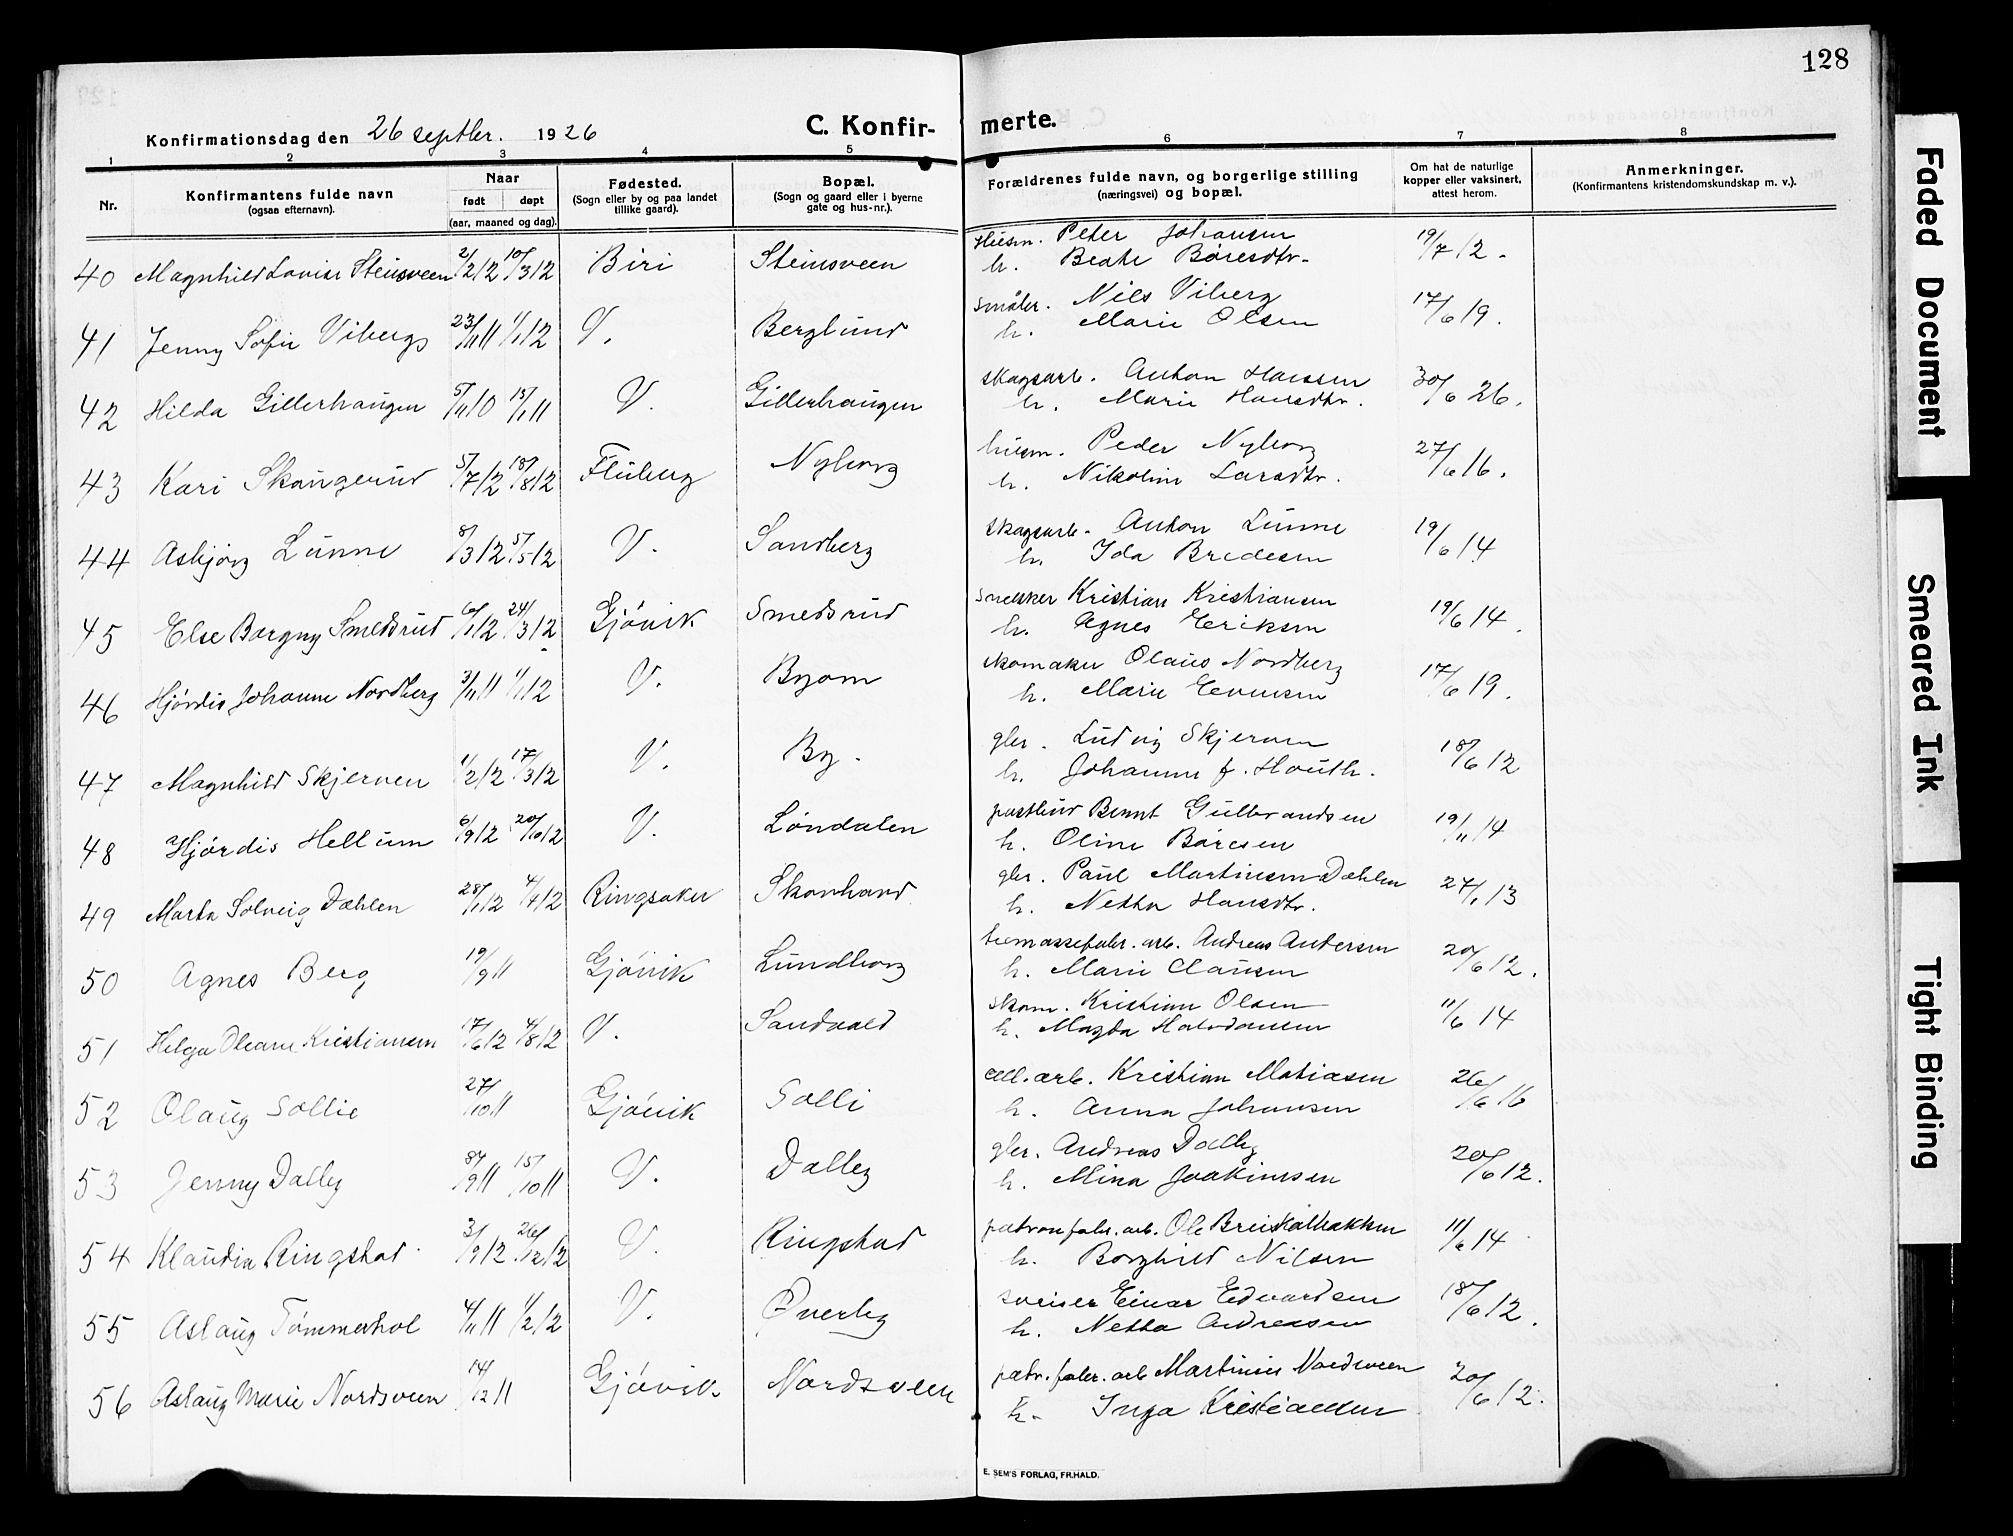 128
Konfirmationsdag den 26 septbr. 1926
C. Konfir-
merte.
1 2 3 4 5 6 7 8
Nr.
Konfirmantens fulde navn
(ogsaa efternavn).
Naar
født døpt
(aar, maaned og dag).
Fødested.
(Sogn eller by og paa landet
tillike gaard).
Bopæl.
(Sogn og gaard eller i byerne
gate og hus-nr.).
Forældrenes fulde navn, og borgerlige stilling
(næringsvei) og bopæl.
Om hat de naturlige
kopper eller vaksinert,
attest herom.
Anmerkninger.
(Konfirmantens kristendomskundskap m. v.).
40 Magnhild Lovise Steinsveen 2/2 12 10/3 12 Biri Steinsveen
Husm. Peter Johansen 19/7 12.
h. Beate Børesdtr.
41 Jenny Sofie Viberg 23/11 11 1/1 12 V. Berglund
småbr. Nils Viberg 17/6 19.
h. Marie Olsen
42 Hilda Gillerhaugen 5/11 10 15/1 11 V. Gillerhaugen
skogsarb. Anton Hansen 30/6 26.
h. Marie Hansdtr.
43 Kari Skaugerud 5/7 12 18/8 12 Fluberg Nyborg
husm. Peder Nyborg 27/6 16.
h. Nikoline Larsdtr.
44 Asbjørg Lunne 8/3 12 5/5 12 V. Sandberg
skogsarb. Anton Lunne 19/6 14
h. Ida Bredesen
45 Else Borgny Smedsrud 6/1 12 24/3 12 Gjøvik Smedsrud
snekker Kristian Kristiansen 19/6 14.
h. Agnes Eriksen
46 Hjørdis Johanne Nordberg 3/11 11 1/1 12 V. Byom
skomaker Olaus Nordberg 17/6 19.
h. Marie Evensen
47 Magnhild Skjerven 1/2 12 17/3 12 V. By.
gbr. Ludvig Skjerven 18/6 12
h. Johanne f. Houth.
48 Hjørdis Hellum 6/9 12 20/10 12 V. Løndalen
postbud Bernt Gulbrandsen 19/11 14
h. Oline Børesen
49 Marta Solveig Dæhlen 28/1 12 4/4 12 Ringsaker Skonhard
gbr. Paul Martinsen Dæhlen 27/1 13
h. Netta Hansdtr.
50 Agnes Berg 19/9 11 Gjøvik Lundborg
tremassefabr. arb. Andreas Andersen 20/6 12.
h. Marie Clausen
51 Helga Oleane Kristiansen 17/6 12 4/8 12 V. Sandvold
skom. Kristian Olsen 11/6 14
h. Magda Halvdansen
52 Olaug Sollie 27/10 11 Gjøvik Solli
cell. arb. Kristian Matiasen 26/6 16
h. Anna Johansen
53 Jenny Dalby 8/9 11 15/10 11 V. Dalby
gbr. Andreas Dalby 20/6 12.
h. Mina Joakimsen
54 Klaudia Ringstad 3/9 12 26/12 12 V. Ringstad
patronfabr. arb. Ole Breiskalbakken 11/6 14
h. Borghild Nilsen
55 Aslaug Tømmerhol 4/11 11 11/2 12 V. Øverby
sveiser Einar Edvardsen 18/6 12.
h. Netta Andreasen
56 Aslaug Marie Nordsveen 14/12 11 Gjøvik Nordsveen
patr. fabr. arb Martinius Nordsveen 20/6 12.
h. Inga Kristiansen
E. SEM'S FORLAG, FR.HALD.
Faded Document
Smeared Ink
Tight Binding